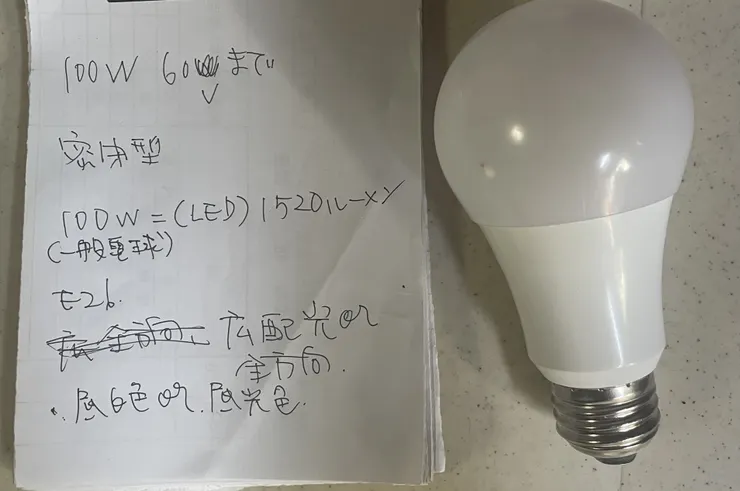 100W 60Wまで
V
密閉型
100W=(LED)1520ルーメン
(一般電球)
E26.
広配光or
全方向.
・昼白色or.昼光色.